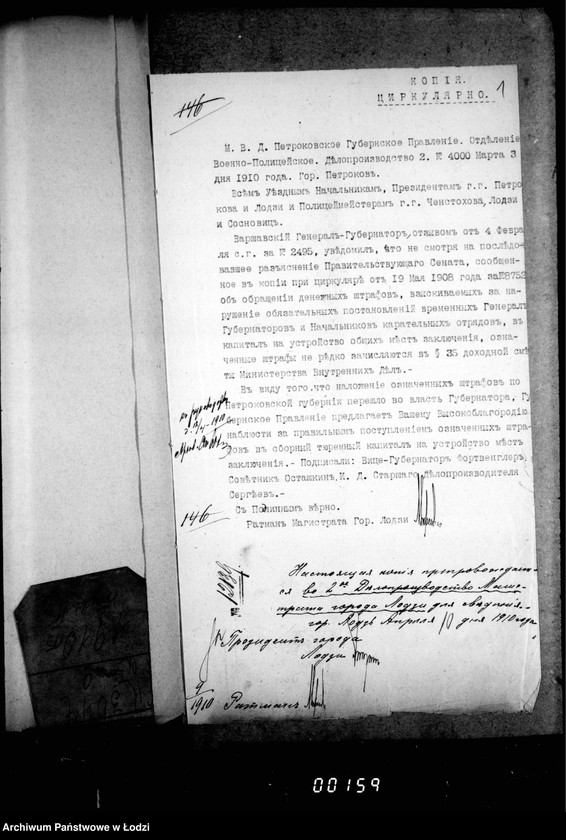 КОПІЯ.
ЦИРКУЛЯРНО. 1
146
М. В. Д. Петроковское Губернское Правленіе. Отдѣленіе
Военно-Полицейское. Дѣлопроизводство 2. № 4000 Марта 3
дня 1910 года. Гор. Петроков.
Всѣмъ Уѣзднымъ Начальникамъ, Президентам г.г. Петро
кова и Лодзи и Полицеймейстерам г.г. Ченстохова, Лодзи
и Сосновицъ.
Варшавскій Генералъ-Губернаторъ, отзывом отъ 4 Февра
ля с.г. за № 2495, увѣдомилъ, что не смотря на послѣдо-
вавшее разъясненіе Правительствующаго Сената, сообщен-
ное в копіи при циркулярѣ отъ 19 Мая 1908 года за№8752
объ обращеніи денежныхъ штрафовъ, взыскиваемыхъ за на-
рушеніе обязательныхъ постановленій временныхъ Генералъ
Губернаторовъ и Начальниковъ карательныхъ отрядовъ, въ
капиталъ на устройство общихъ мѣстъ заключенія, озна-
ченные штрафы не рѣдко зачисляются въ § 35 доходной смѣ
ты Министерства Внутреннихъ Дѣлъ.-
Въ виду того, что наложеніе означенныхъ штрафовъ по
Петроковской губерніи перешло во власть Губернатора, Гу
бернское Правленіе предлагаетъ Вашему Высокоблагородію
наблюсти за правильнымъ поступленіемъ означенныхъ штра-
фовъ въ сборный тюремный капиталъ на устройство мѣстъ
заключенія.- Подписали: Вице-Губернаторъ Фортвенглеръ,
Совѣтник Осташкинъ, И. Д. Старшаго Дѣлопроизводителя
Сергѣевъ.-
Съ Подлинным вѣрно.
Ратман Магистрата Гор. Лодзи
146
№ 12139
Настоящая копія препровождает-
ся во 2ое Дѣлопроизводство Маги-
страта города Лодзи для свѣдѣнія.
гор. Лодзь Апрѣля 10 дня 1910 года
Президентъ города
Лодзи
1910 Ратманъ
00159
Archiwum Państwowe w Łodzi